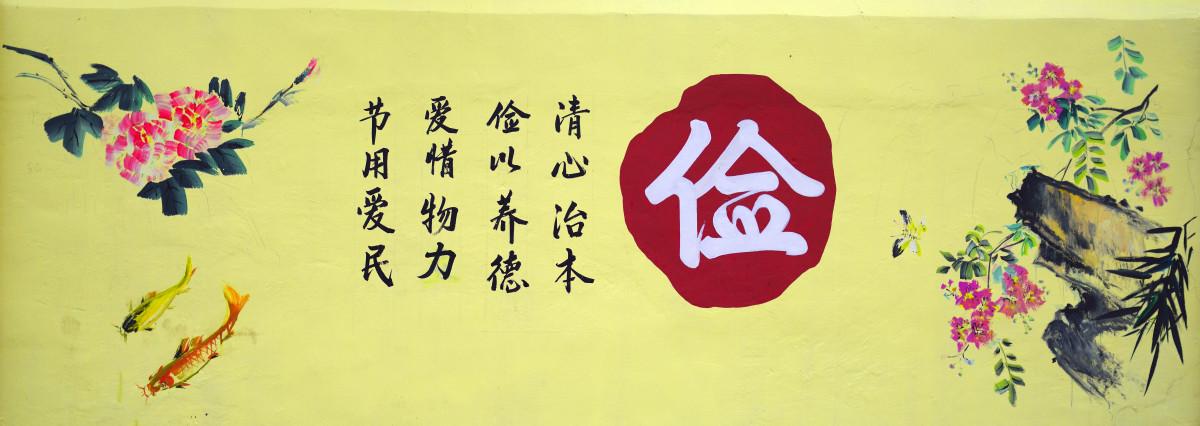 俭
清心治本
俭以养德
爱惜物力
节用爱民